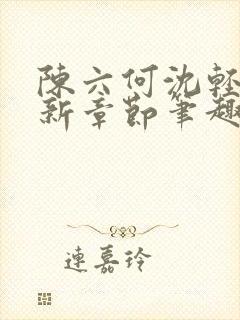 陳六何沈輕
新章節筆趣
連嘉玲